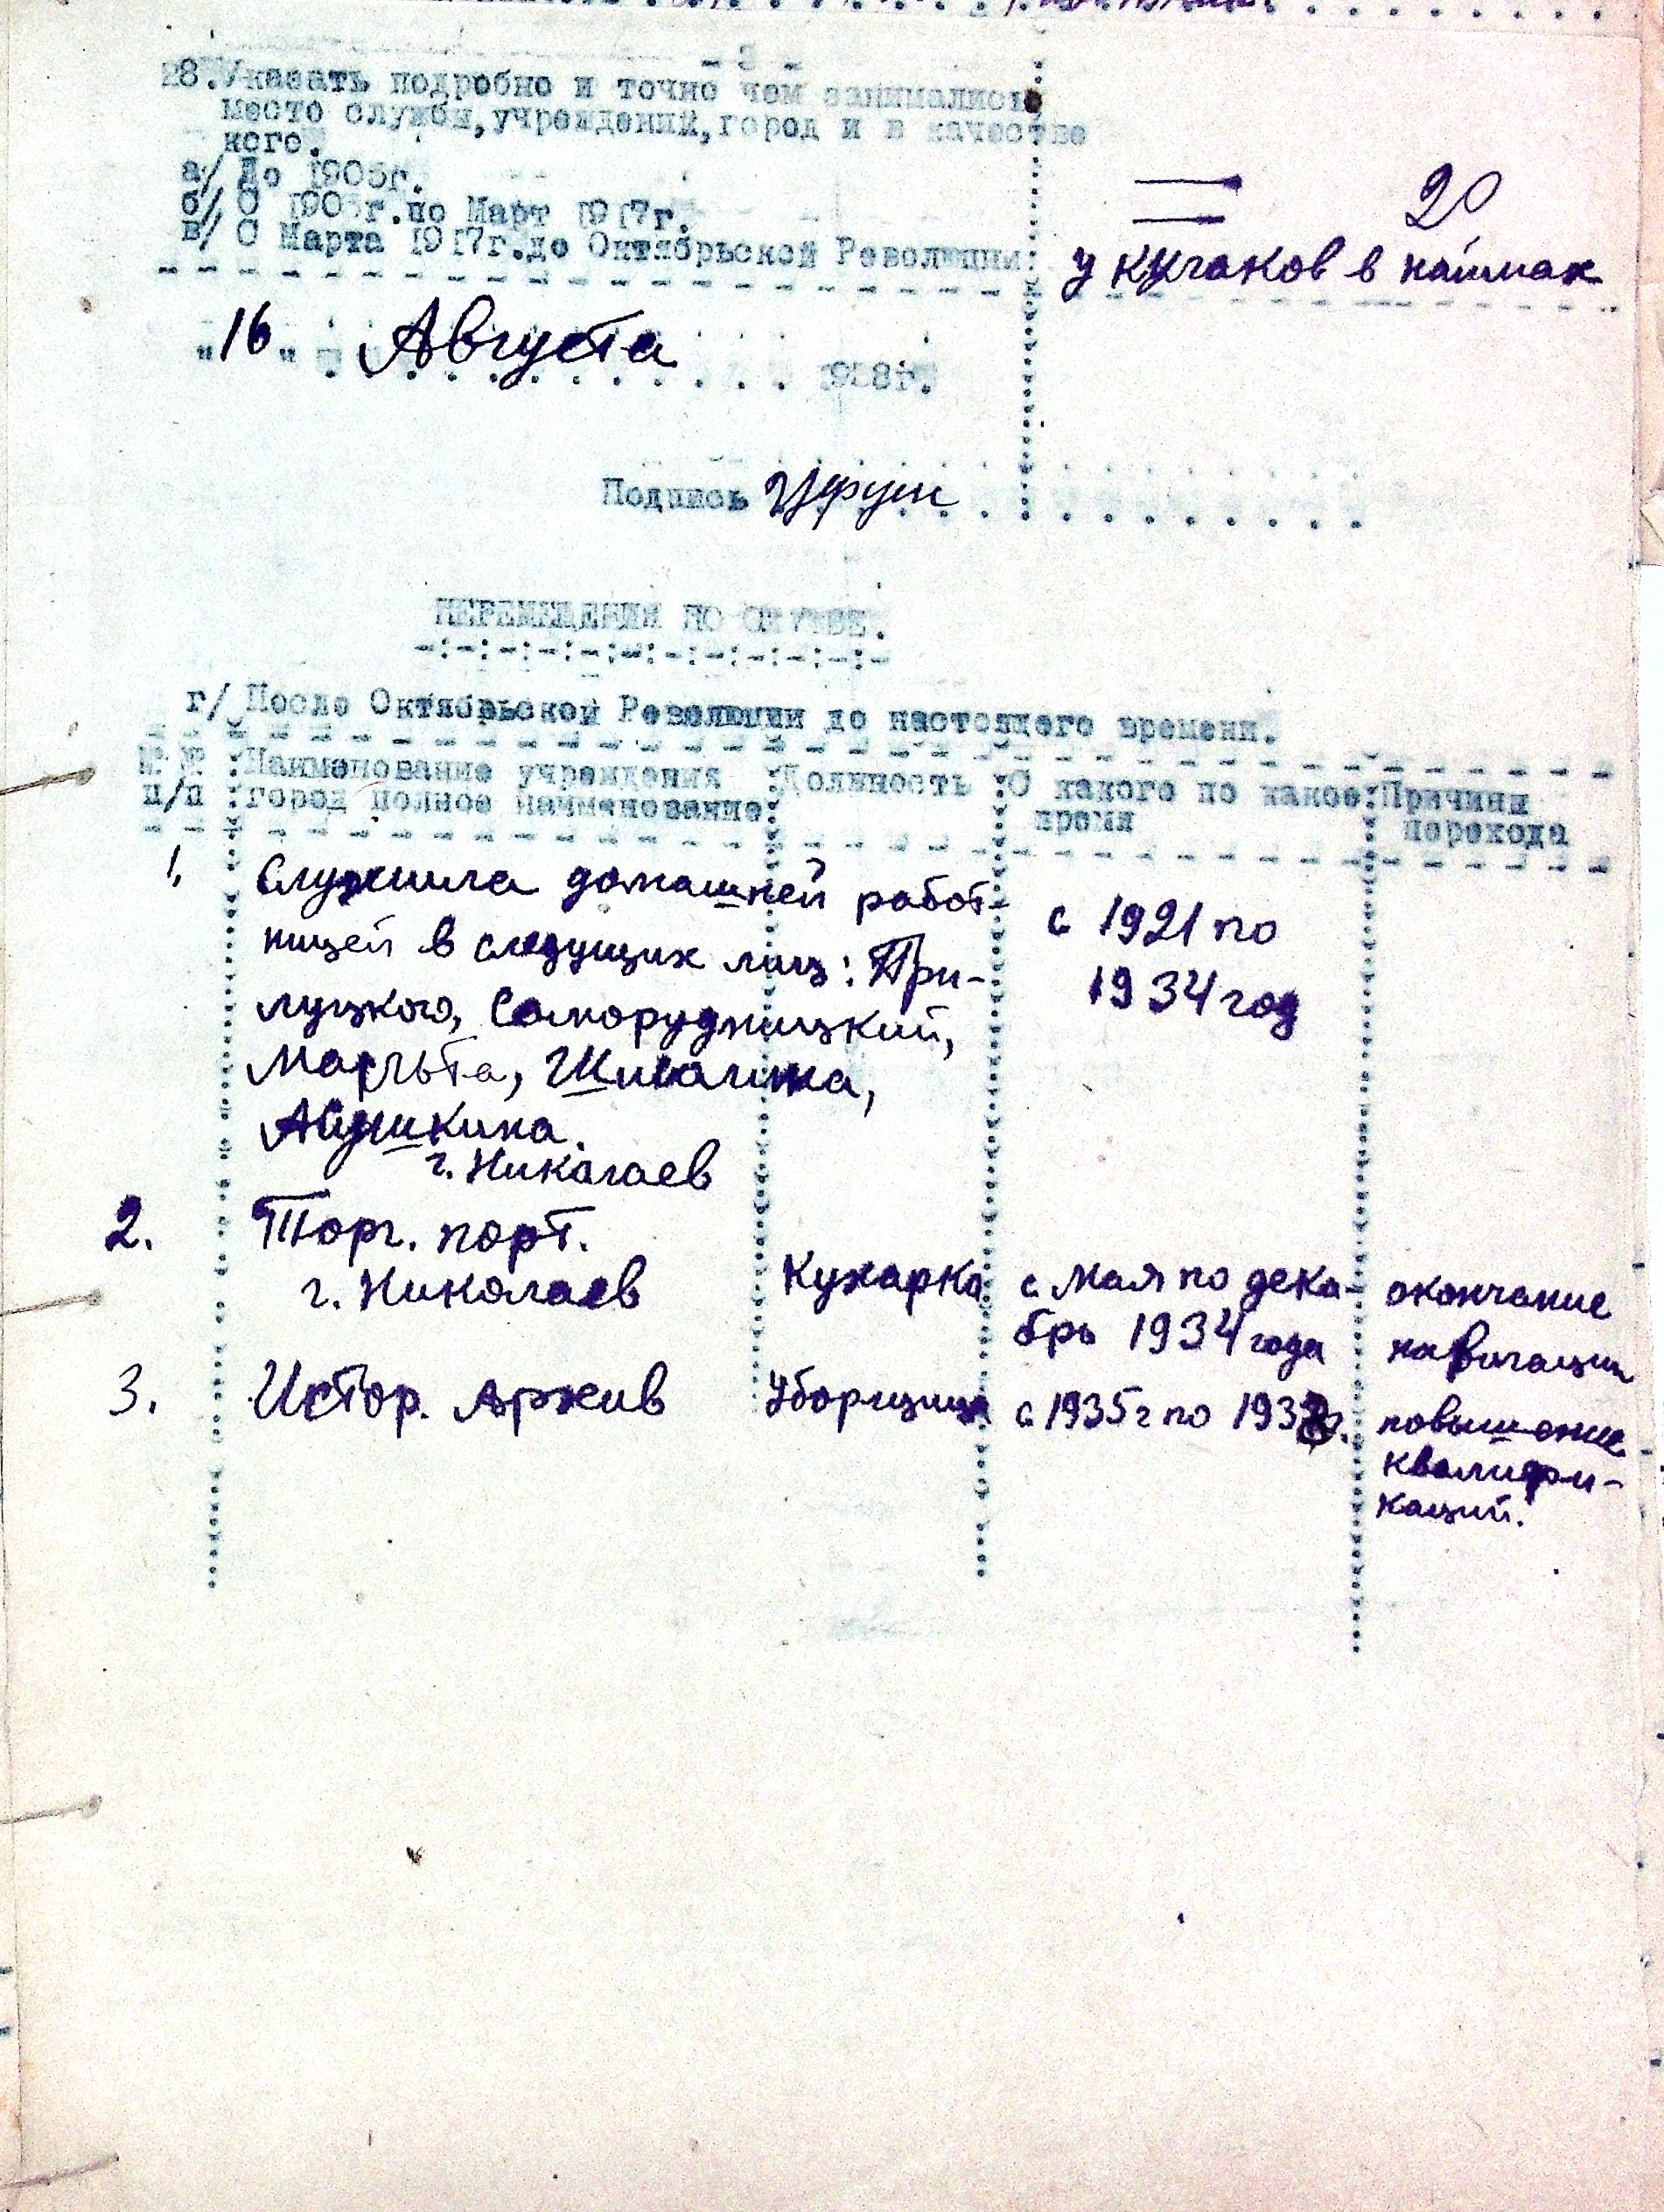 - 3 -
28.Указать подробно и точно чем занимались,
место службы,учреждений,город и в качестве
кого.
а/ До 1905г.
б/ С 1905г.по Март 1917г.
20
в/ С Марта 1917г.до Октябрьской Революции:
у кулаков в наймах
"16" Августа 1938г.
Подпись
ПЕРЕМЕЩЕНИЯ ПО СЛУЖБЕ.
г/ После Октябрьской Революции до настоящего времени.
№ № Наименование учреждения Должность С какого по какое Причины
п/п город полное наименование время перехода
1. Служила домашней работ-
ницей в следущих лиц: При-
с 1921 по
луцкого, Саморудницкий,
1934 год
г. Николаев
2. Торг. порт.
г. Николаев Кухарка с Мая по дека- окончание
брь 1934 года навигации
3. Истор. Архив Уборщица с 1935г по 1938г. повышение
квалифи-
каций.